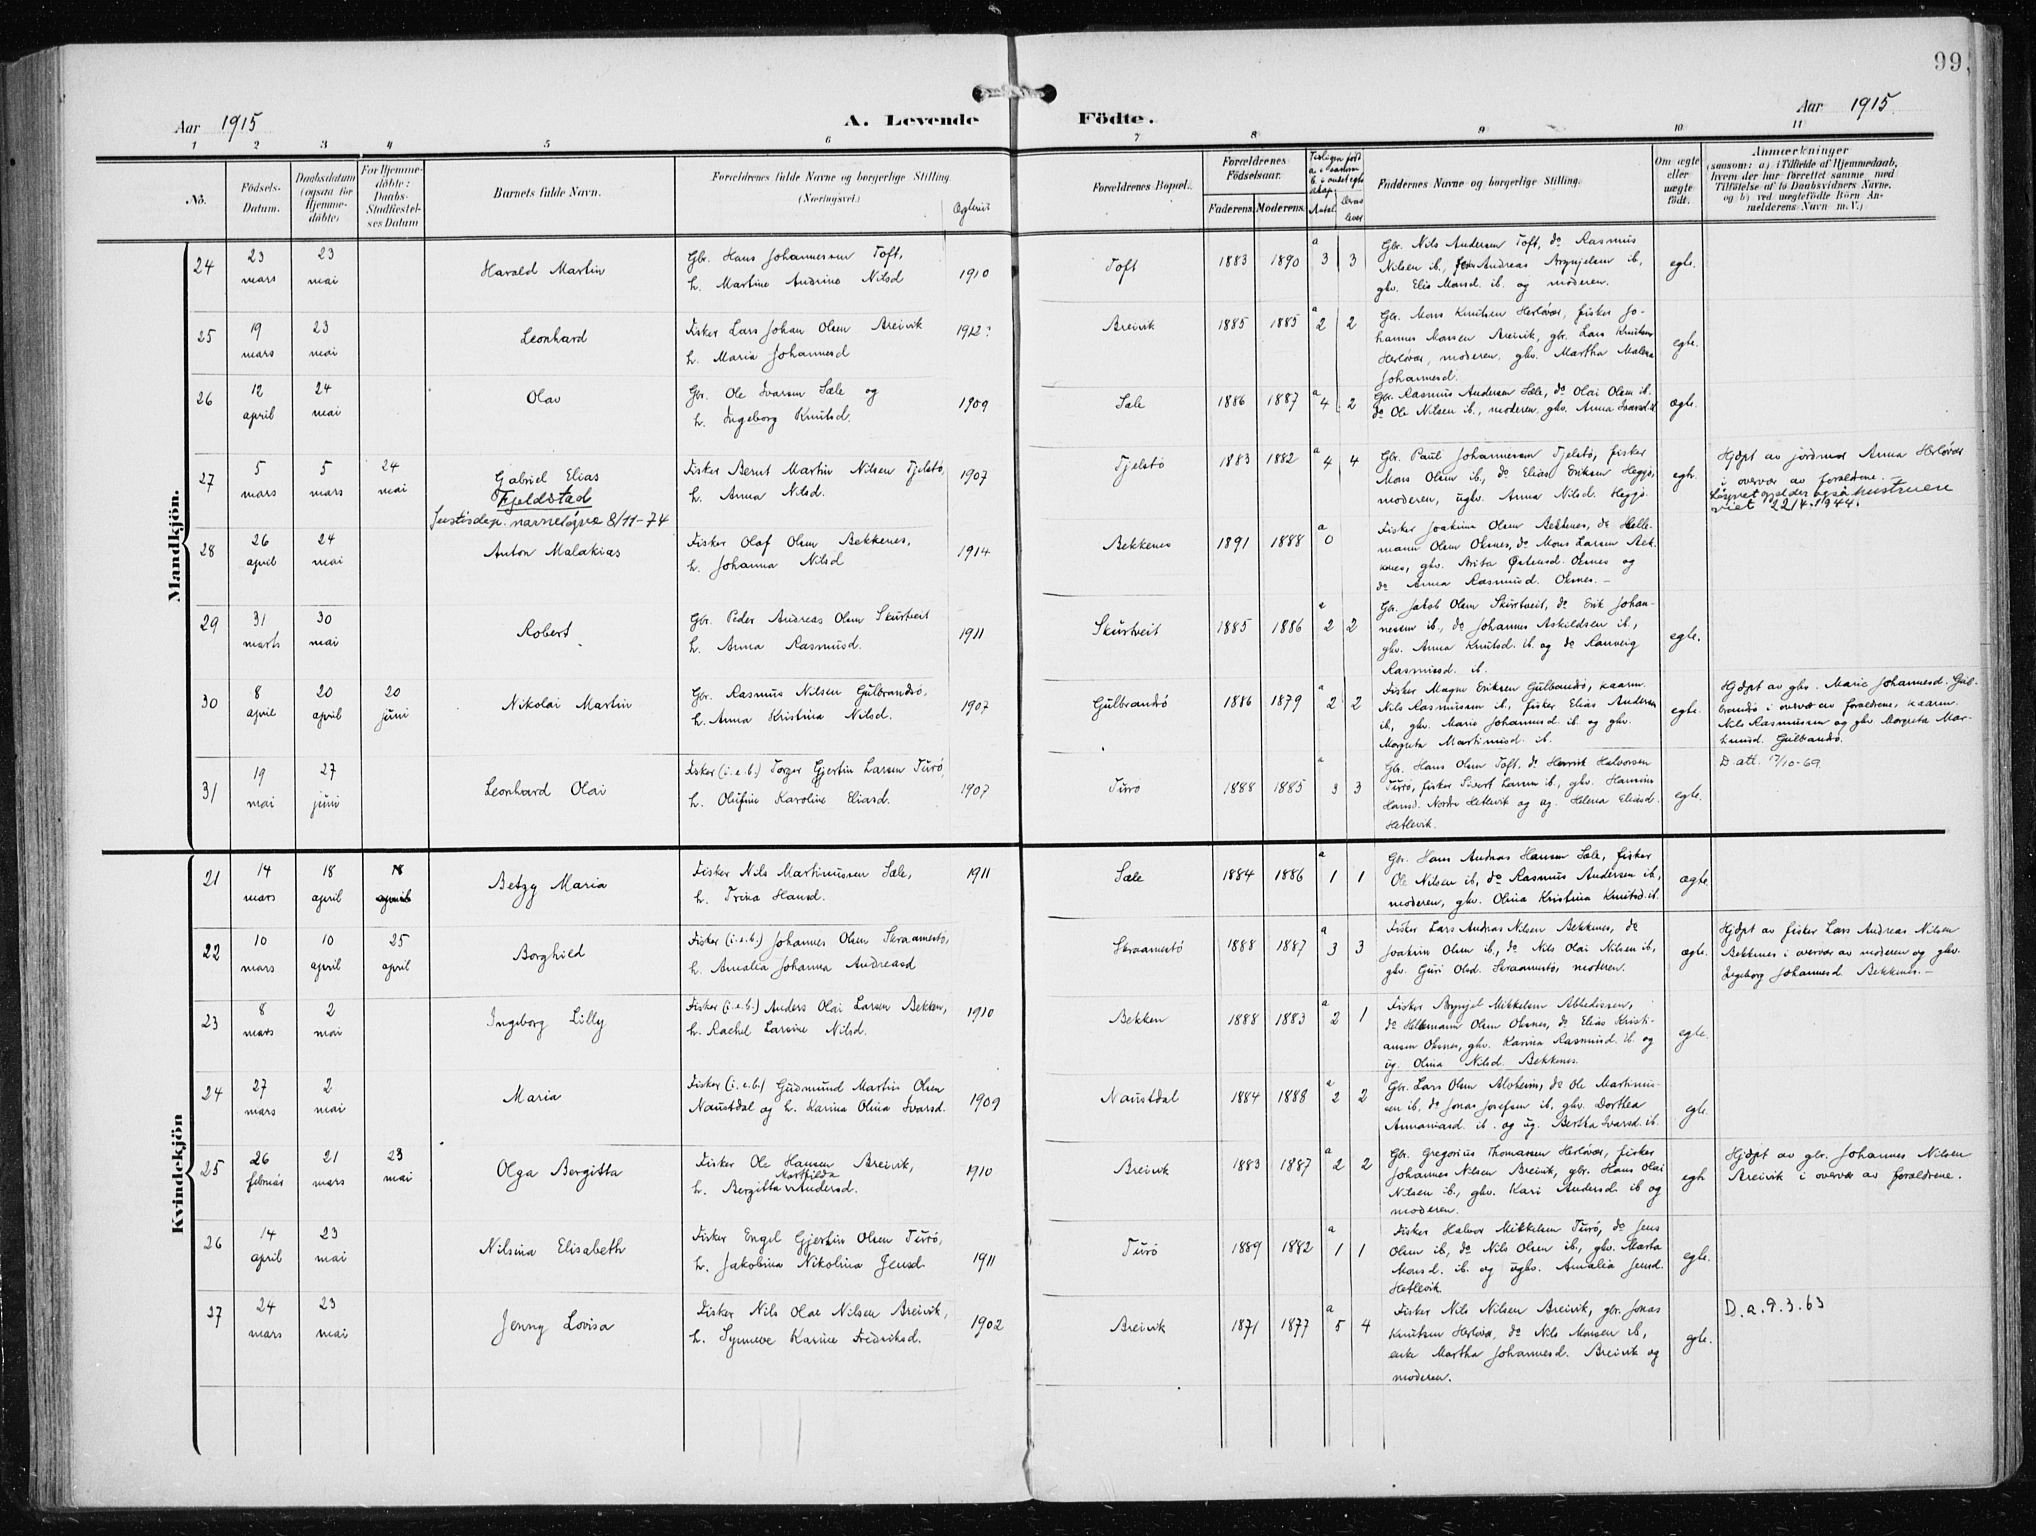 99
Aar 1915
A. Levende Födte.
Aar 1915
1 2 3 4 5 6 7 8 9 10 11
No.
Födsels-
Datum.
Daabsdatum
(ogsaa for
Hjemme-
döbte)
For Hjemme-
döbte:
Daabs-
Stadfæstel-
ses Datum
Barnets fulde Navn.
Forældrenes fulde Navne og borgerlige Stilling
(Næringsvei.)
Forældrenes Bopæl.
Forældrenes
Födselsaar.
Faderens. Moderens.
Antal
Faddernes Navne og borgerlige Stilling.
Om ægte
eller
uægte
födt.
Anmærkninger
(saasom: a) i Tilfælde af Hjemmedaab,
hvem der har forrettet samme med
Tilföielse af to Daabsvidners Navne,
og b) ved uægtefödte Börn An-
melderens Navn m. V.)
Mandkjön.
24
23 mars
23 mai
Harald Martin
Gbr. Hans Johannessen Toft,
h. Martine Andrine Nilsd
1910
Toft
1883 1890
a 3 3
Gbr. Nils Andersen Toft, do Rasmus
Nilsen ib, Andreas Brynjelsen ib,
ghv. Elis Monsd. ib. og moderen.
egte.
25
19 mars
23 mai
Leonhard
Fisker Lars Johan Olsen Breivik
h. Maria Johannesd
1912
Breivik
1885 1885
a 2 2
Gbr. Mons Knutsen Herløvær, fisker Jo-
hannes Monsen Breivik, gbr. Lars Knutsen
Herløvær, moderen, ghv. Martha Malena
Johannesd.
egte.
26
12 april
24 mai
Olav
Gbr. Ole Ivarsen Sæle og
h. Ingeborg Knutsd.
1909
Sæle
1886 1887
a 4 2
Gbr. Rasmus Andersen Sæle, do Olai Olsen ib.
do Ole Nilsen ib., moderen, ghv. Anna Ivarsd. ib
ægte.
27
5 mars
5 mars
24 mai
Gabriel Elias
Fjeldstad
Justisdep. navneløyve 8/11-74
Fisker Bernt Martin Nilsen Tjelstø,
h. Anna Nilsd.
1907
Tjelstø
1883 1882
a 4 4
Gbr. Paul Johannessen Tjelstø, fisker
Mons Olsen ib., do Elias Eriksen Heggø,
moderen, ughv. Anna Nilsd. Heggø.
egte.
Hjdpt av jordmor Anna Herløvær
i overvær av foreldrene.
Løyvet gjelder også hustruen
viet 22/4.1944.
28
26 april
24 mai
Anton Malakias
Fisker Olaf Olsen Bekkenes,
h. Johanna Nilsd
1914
Bekkenes
1891 1888
a 0
Fisker Joakim Olsen Bekkenes, do Helle-
mann Olsen Oksnes, do Mons Larsen Bek-
kenes, ghv. Brita Østensd. Oksnes og
do Anna Rasmusd. Oksnes. -
29
31 marts
30 mai
Robert
Gbr. Peder Andreas Olsen Skurtveit
h. Anna Rasmusd.
1911
Skurtveit
1885 1886
a 2 2
Gbr. Jakob Olsen Skurtveit, do Erik Johan-
nesen ib., do Johannes Askildsen ib.,
ghv. Anna Knutsd. ib. og do Ranveig
Rasmusd. ib.
egte.
30
8 april
20 april
20 juni
Nikolai Martin
Gbr. Rasmus Nilsen Gulbrandsø,
h. Anna Kristina Nilsd.
1907
Gulbrandsø
1886 1879
a 2 2
Fisker Magne Eriksen Gulbandsø, kaarm.
Nils Rasmussen ib., fisker Elias Andersen
ib, ghv. Marie Johannesd. ib. og ghv.
Margreta Martinusd. ib.
egte.
Hjdpt av ghv. Marie Johannesd. Gul-
brandsø i overvær av foreldrene, kaarm.
Nils Rasmussen og ghv Margreta Mar-
tinusd. Gulbrandsø.
D. att. 17/10-69
31
19 mai
27 juni
Leonhard Olai
Fisker (i.e.b.) Torger Gjertin Larsen Turø,
h. Olufine Karoline Eliasd.
1907
Turø
1888 1885
a 3 3
Gbr. Hans Olsen Toft, do Henrik Halvorsen
Turø, fisker Sivert Larsen ib., ghv. Hansine
Hansd. Nordre Hetlevik og ug. Helena Eliasd.
Hetlevik.
egte.
Kvindekjön
21
14 mars
18 april
18 april
Betzy Maria
Fisker Nils Martinussen Sæle,
h. Trina Hansd.
1911
Sæle
1884 1886
a 1 1
Gbr. Hans Andreas Hansen Sæle, fisker
Ole Nilsen ib, do Rasmus Andersen ib,
moderen, ghv. Olina Kristina Knutsd. ib.
ægte.
22
10 mars
10 april
25 april
Borghild
Fisker (i.e.b.) Johannes Olsen Skraamestø,
h. Amalia Johanna Andreasd
Skraamestø
1888 1887
a 3 3
Fisker Lars Andreas Nilsen Bekkenes, do
Joakim Olsen ib., do Nils Olai Nilsen ib.,
ghv. Guri Olsd. Skraamestø, moderen.
ægte.
Hjdpt av fisker Lars Andreas Nilsen
Bekkenes i overvær av moderen og ghv.
Ingeborg Johannesd. Bekkenes. -
23
8 mars
2 mai
Ingeborg Lilly
Fisker (i.e.b.) Anders Olai Larsen Bekken,
h. Rachel Larsine Nilsd.
1910
Bekken
1888 1883
a 2 1
Fisker Brynjel Mikkelsen Abbedissen,
do Hellemann Olsen Oksnes, do Elias Kristi-
ansen Oksnes, ghv. Karina Rasmusd. ib. og
ug. Olina Nilsd. Bekkenes.
egte.
24
27 mars
2 mai
Maria
Fisker (i.e.b.) Gudmund Martin Olsen
Naustdal og h. Karina Olina Ivarsd.
1909
Naustdal
1884 1888
a 2 2
Gbr. Lars Olsen Alvheim, do Ole Martinus-
sen ib, do Jonas Josefsen ib, ghv. Dorthea
Annaniasd. ib. og ug. Bertha Ivarsd. ib.
egte.
25
26 februar
21 mars
23 mai
Olga Bergitta
Fisker Ole Hansen Breivik,
h. Bergitta Mathilda Andersd.
1910
Breivik
1883 1887
a 2 2
Gbr. Gregorius Thomassen Herløvær, fisker
Johannes Nilsen Breivik, gbr. Hans Olai
Nilsen ib., ghv. Kari Andersd. ib og
moderen.
egte
Hjdpt av gbr. Johannes Nilsen
Breivik i overvær av foreldrene.
26
14 april
23 mai
Nilsina Elisabeth
Fisker Engel Gjertin Olsen Turø,
h. Jakobina Nikolina Jensd.
1911
Turø
1889 1882
a 1 1
Fisker Halvor Mikkelsen Turø, do Jens
Olsen ib, do Nils Olsen ib., ghv. Marta
Monsd. ib. og ughv. Amalia Jensd.
Hetlevik.
egte.
27
24 mars
23 mai
Jenny Lovisa
Fisker Nils Olai Nilsen Breivik,
h. Synneve Karine Fredriksd.
1902
Breivik
1871 1877
a 5 4
Fisker Nils Nilsen Breivik, gbr. Jonas
Knutsen Herløvær, do Nils Monsen ib,
enke Martha Johannesd. Breivik og
moderen.
egte.
D.a.9.3.63